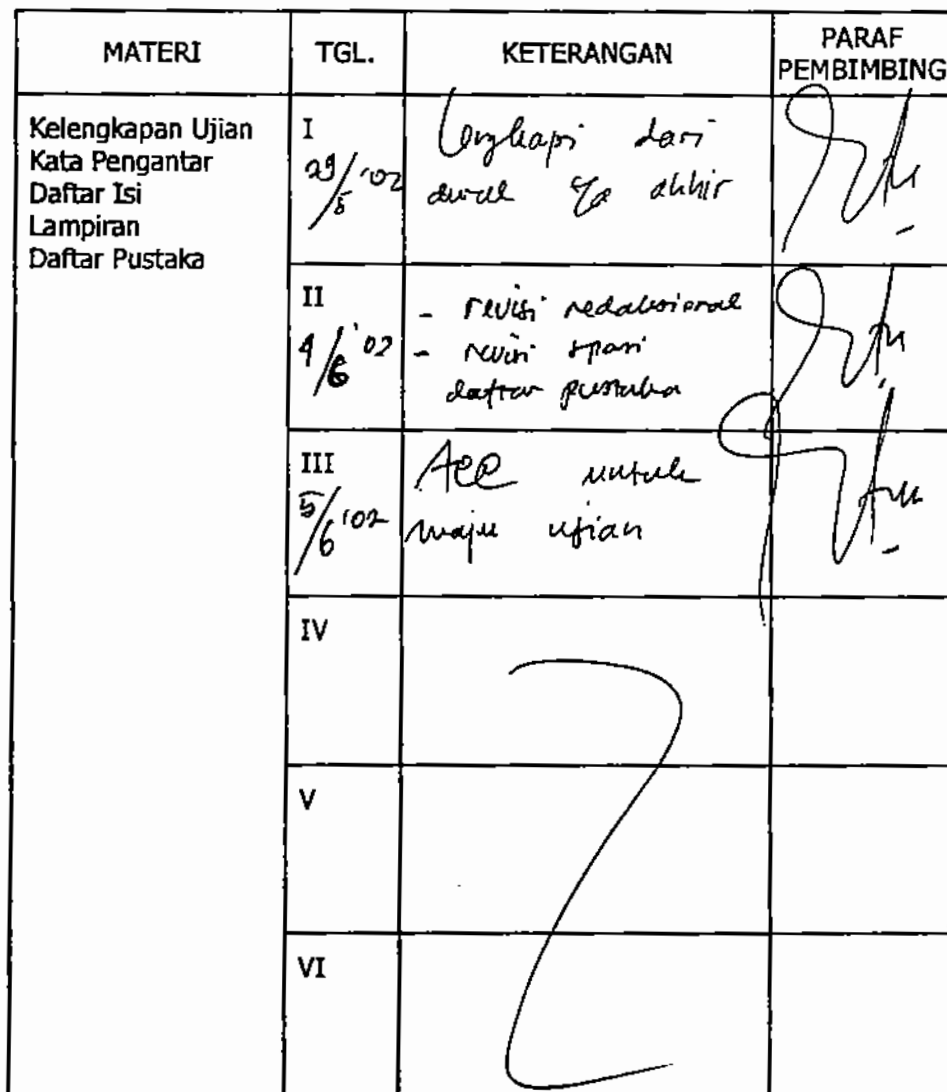 MATERI TGL. KETERANGAN PARAF PEMBIMBING
Kelengkapan Ujian
Kata Pengantar
Daftar Isi
Lampiran
Daftar Pustaka
I
29/5 '02
lengkapi dari
awal s/a akhir
II
4/6 '02
- revisi redaksional
- revisi spasi
daftar pustaka
III
5/6 '02
Acc untuk
maju ujian
IV
V
VI